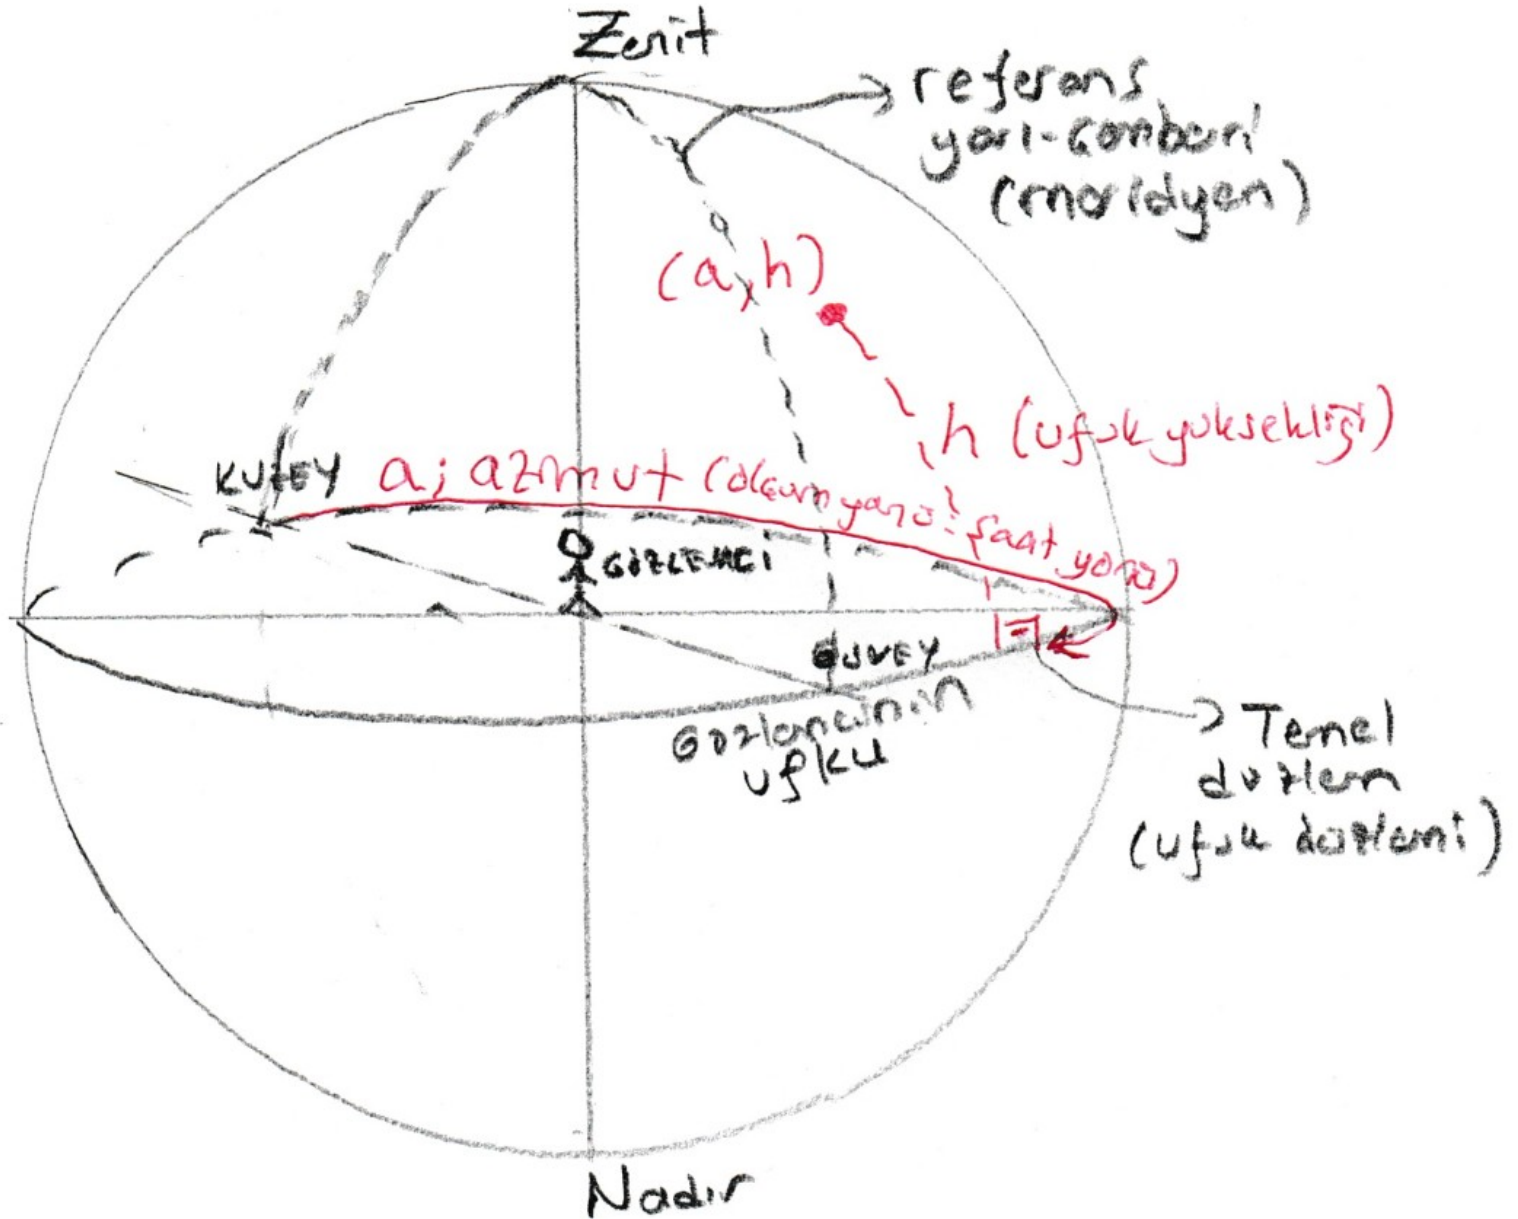 Zenit
referans
yarı-çemberi
(meridyen)
(a,h)
h (ufuk yüksekliği)
KUZEY
a; azimut (ölçüm yönü: saat yönü)
GÖZLEMCİ
GÜNEY
Gözlemcinin
ufku
Temel
düzlem
(ufuk düzlemi)
Nadir